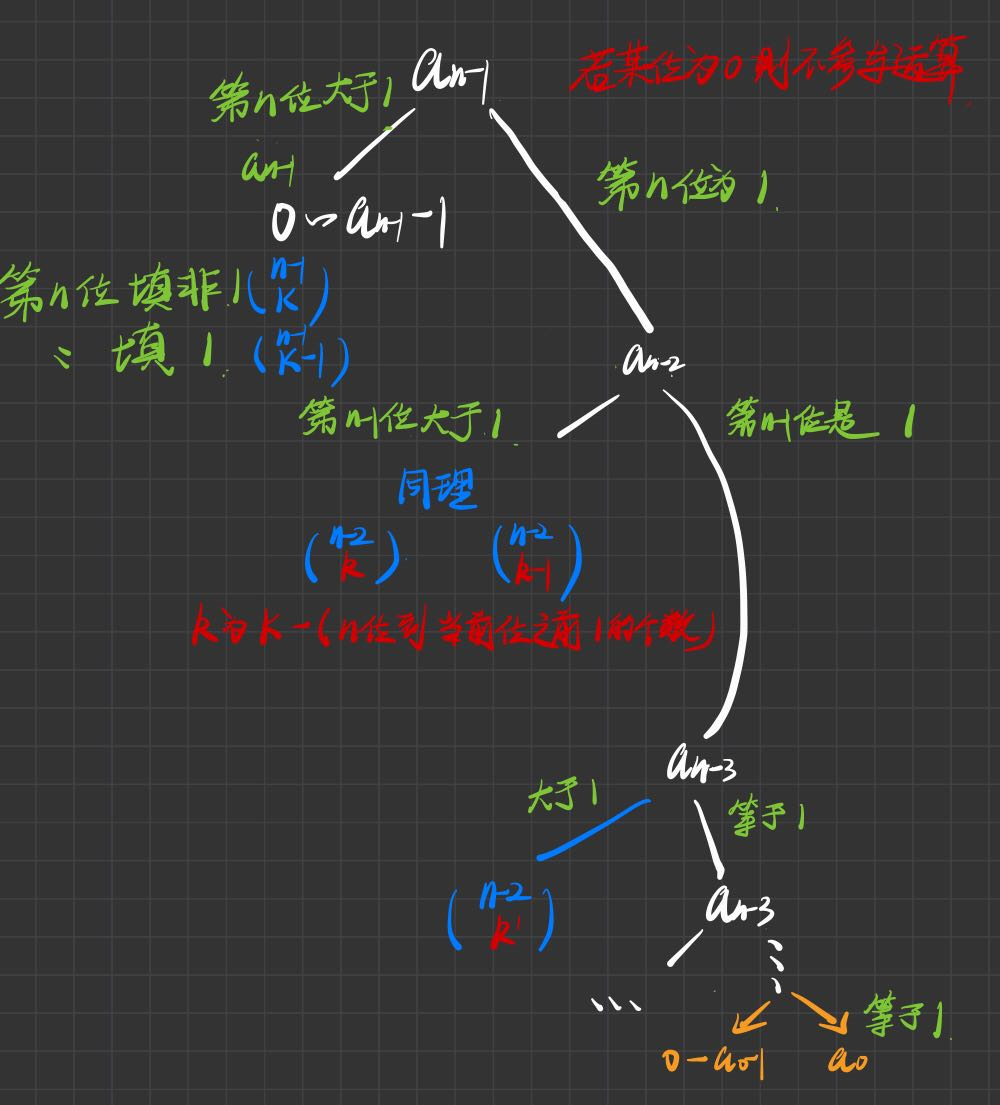 若某位为0则不参与运算.
第n位大于1
aₙ₋₁
aₙ₋₁
0～aₙ₋₁-1
第n位为1.
第n位填非1 (n-1 K)
〃 填1. (n-1 K-1)
aₙ₋₂
第n-1位大于1.
第n-1位是 1
同理
(n-2 k) (n-2 k-1)
k为K-(n位到当前位之前1的个数)
aₙ₋₃
大于1
等于1
(n-2 k')
aₙ₋₃
...
等于1
0-a₀-1
a₀